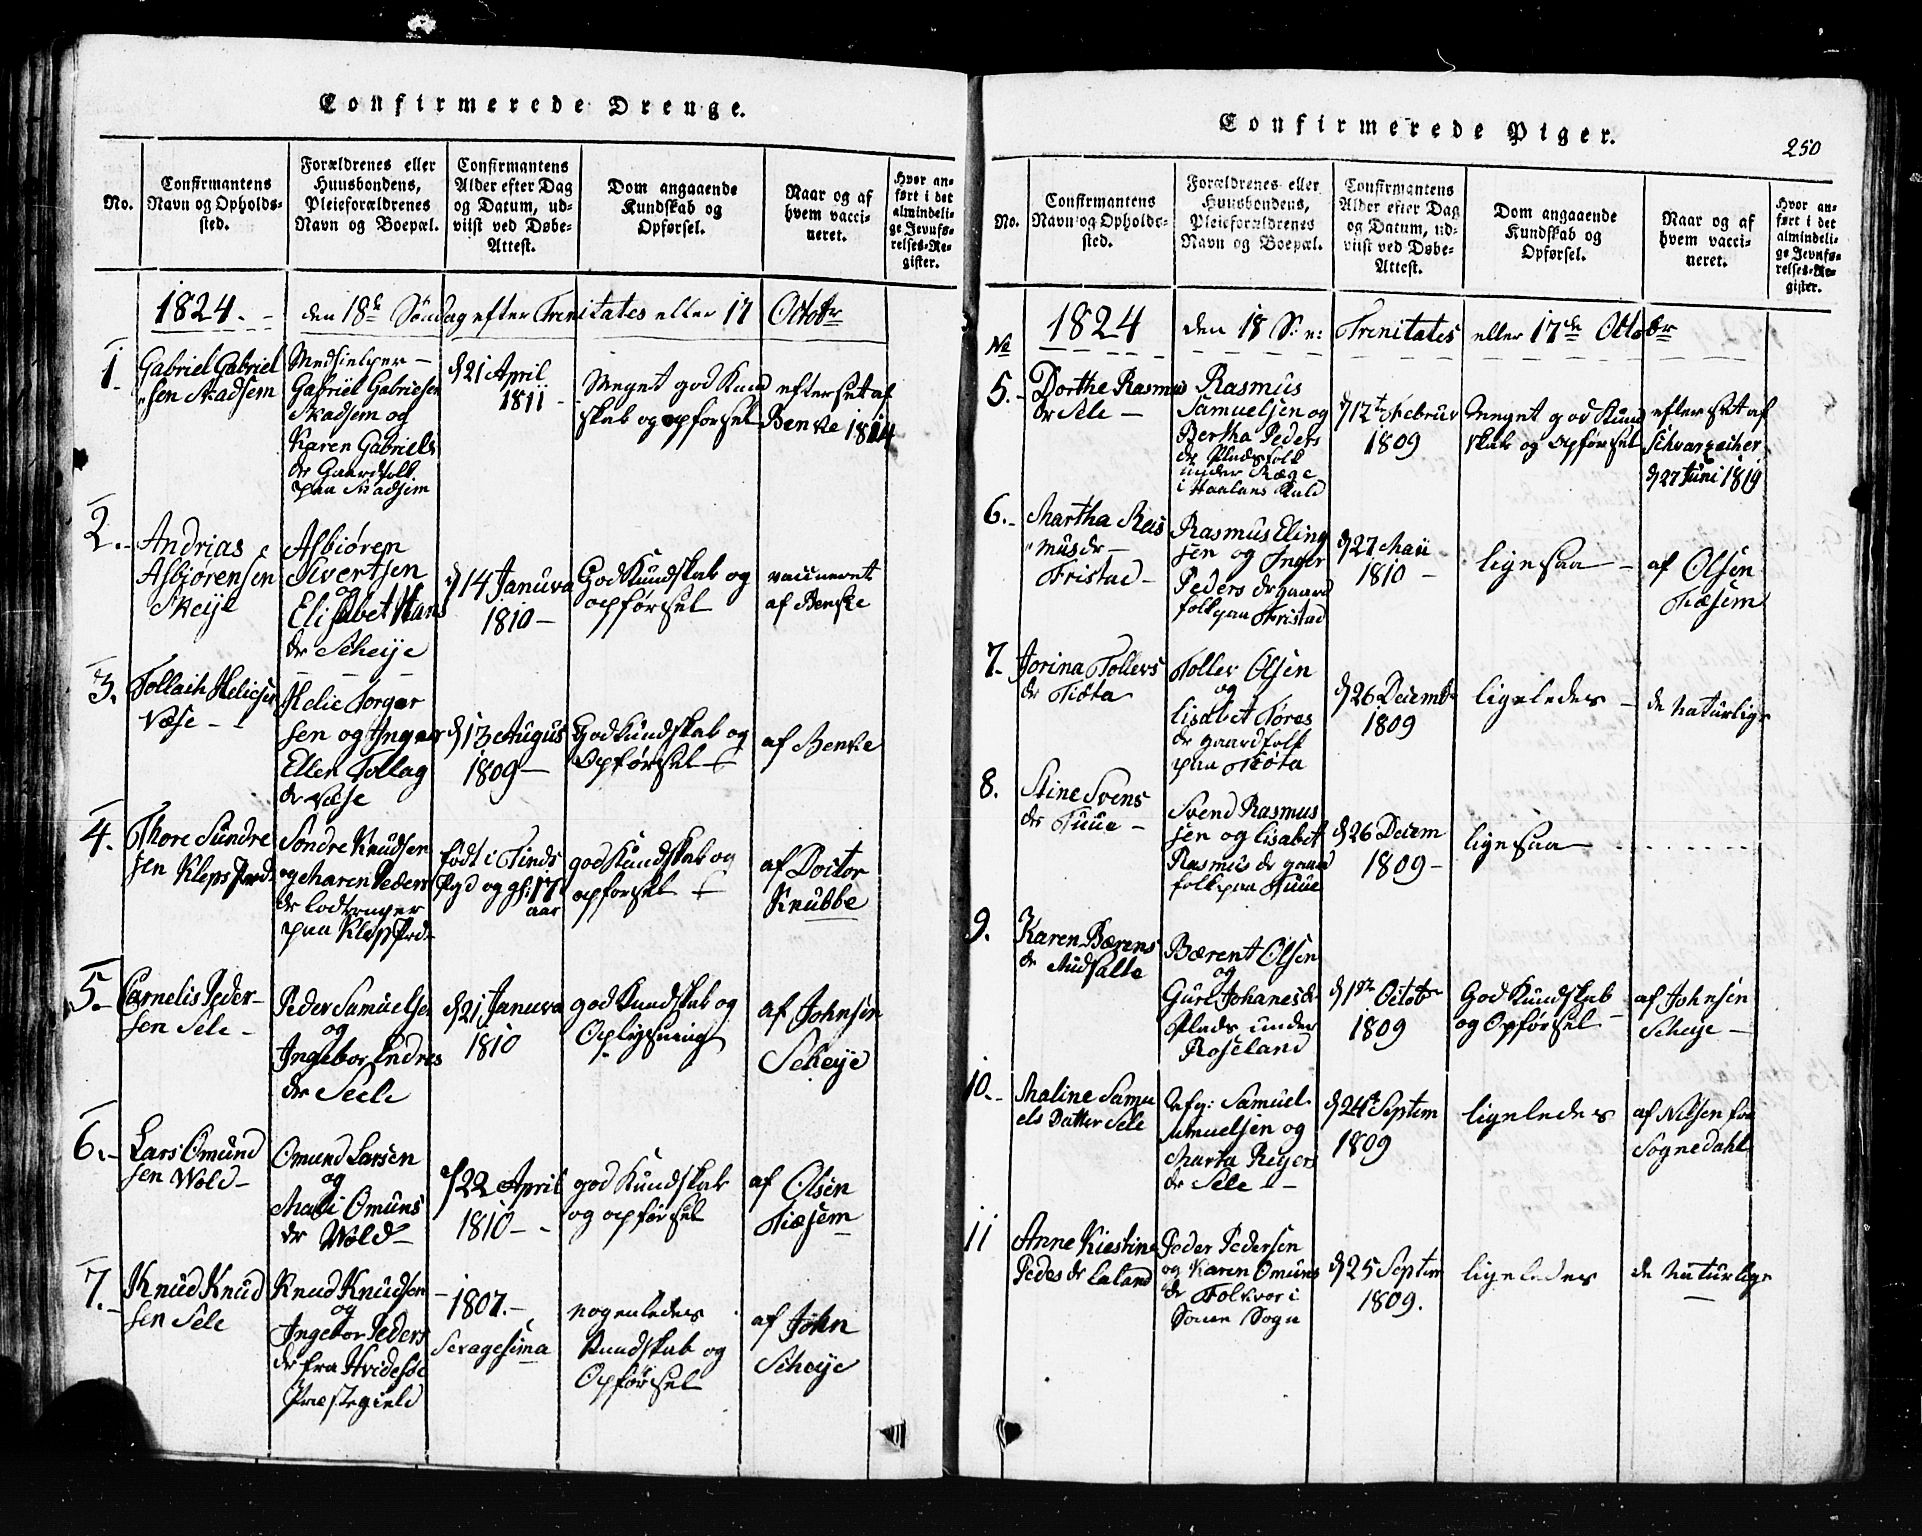 Confirmerede Drenge.
No.
Confirmantens
Navn og Opholds-
sted.
Forældrenes eller
Huusbondens,
Pleieforældrenes
Navn og Boepæl.
Confirmantens
Alder efter Dag
og Datum, ud-
viist ved Døbe-
Attest.
Dom angaaende
Kundskab og
Opførsel.
Naar og af
hvem vacci-
neret.
Hvor an-
ført i det
almindeli-
ge Jevnfø-
relses-Re-
gister.
1824. - den 18de Søndag efter Trenitates eller 17 Octobr
1.
Gabriel Gabriel
sen Skadsem
Medhielper -
Gabriel Gabrielsen
Skadsem og
Karen Gabriels
dr Gaardfolk
paa Skadsem
d 21 April
1811 -
Meget god Kund
skab og opførsel
efterset af
Benke 1814
2.
Andrias
Asbjørensen
Skeije
Asbiøren
Sivertsen
og
Elisabet Hans
dr Scheije
d 14 Januva
1810 -
God Kundskab og
opførsel
vaccineret
af Benke
3.
Tollach Helicsen
Væse -
Helie Torger
sen og Inger
Ellen Tollag
dr Væse
d 13 Augus
1809 -
God Kundskab og
Opførsel -
af Benke
4.
Thore Sundre
sen Kleps Præd
Søndre Knudsen
og Maren Peders
dr
paa
født i Tinds
Pgd og gl: 17
aar
god Kundskab og
opførsel
af Doctor
Knubbe
5.
Cornelis Peder-
sen Sele -
Peder Samuelsen
og
Ingebor Endres
dr Seele
d 21 Januva
1810
god Kundskab og
Oplysning
af Johnsen
Scheije
6.
Lars Omund
sen Wold -
Omund Larsen
og
Mali Omuns
dr Wold -
d 22 April
1810 -
god Kundskab
og opførsel
af Olsen
Tiæsem
7.
Knud Knud
sen Sele
Knud Knudsen
og
Ingebor Peders
dr fra Hvidesøe
Præstegield
1807. -
Sexagesima
nogenledes
Kundskab og
Opførsel
af John
Scheije
Confirmerede Piger.
250
No.
Confirmantens
Navn og Opholds-
sted.
Forældrenes eller
Huusbondens,
Pleieforældrenes
Navn og Boepæl.
Confirmantens
Alder efter Dag
og Datum, ud-
viist ved Døbe-
Attest.
Dom angaaende
Kundskab og
Opførsel.
Naar og af
hvem vacci-
neret.
Hvor an-
ført i det
almindeli-
ge Jevnfø-
relses-Re-
gister.
No 1824 den 18 S: e: Trenitates eller 17de Octobr
5.
Dorthe Rasmus
dr Sele -
Rasmus
Samuelsen og
Bertha Peders
dr Pladsfolk
under Ræge
i Haalans Kald
d 12te Februr
1809
Meget god Kund
skab og opførsel
efterset af
Schvarzacher
d 27 Juni 1819
6. -
Martha Ras
musdr -
Fristad -
Rasmus Eling
sen og Inger
Peders dr gaard
folk paa Fristad
d 27 Maii
1810 -
ligesaa -
af Olsen
Tiæsem
7.
Jorina Tollers
dr Tiøta
Toller Olsen
og
Lisabet Tøres
dr gaardfolk
paa Tiøta
d 26 Decembr
1809
ligeledes -
de Naturlige
8.
Stine Svens
dr Tuue -
Svend Rasmus
sen og Lisabet
Rasmus dr gaard
folk paa Tuue
d 26 Decem
1809 -
ligesaa
9.
Karen Bærens
dr
Bærent Olsen
og
Guri Johanesdr
Plads under
Roseland
d 1ste Octobr
1809
God Kundskab
og Opførsel
af Johnsen
Scheije -
10. -
Maline Samu
els Datter Sele
Afg: Samuel
Samuelsen og
Marta Reijers
dr Sele -
d 24de Septem
1809
ligeledes
af Nilsen fra
Sognedahl
11
Anne Kiestine
Pedes dr Laland
Peder Pedersen
og Karen Omuns
dr Folkvor i
Sogn
d 25 Septem
1809.
ligeledes
de Naturlige